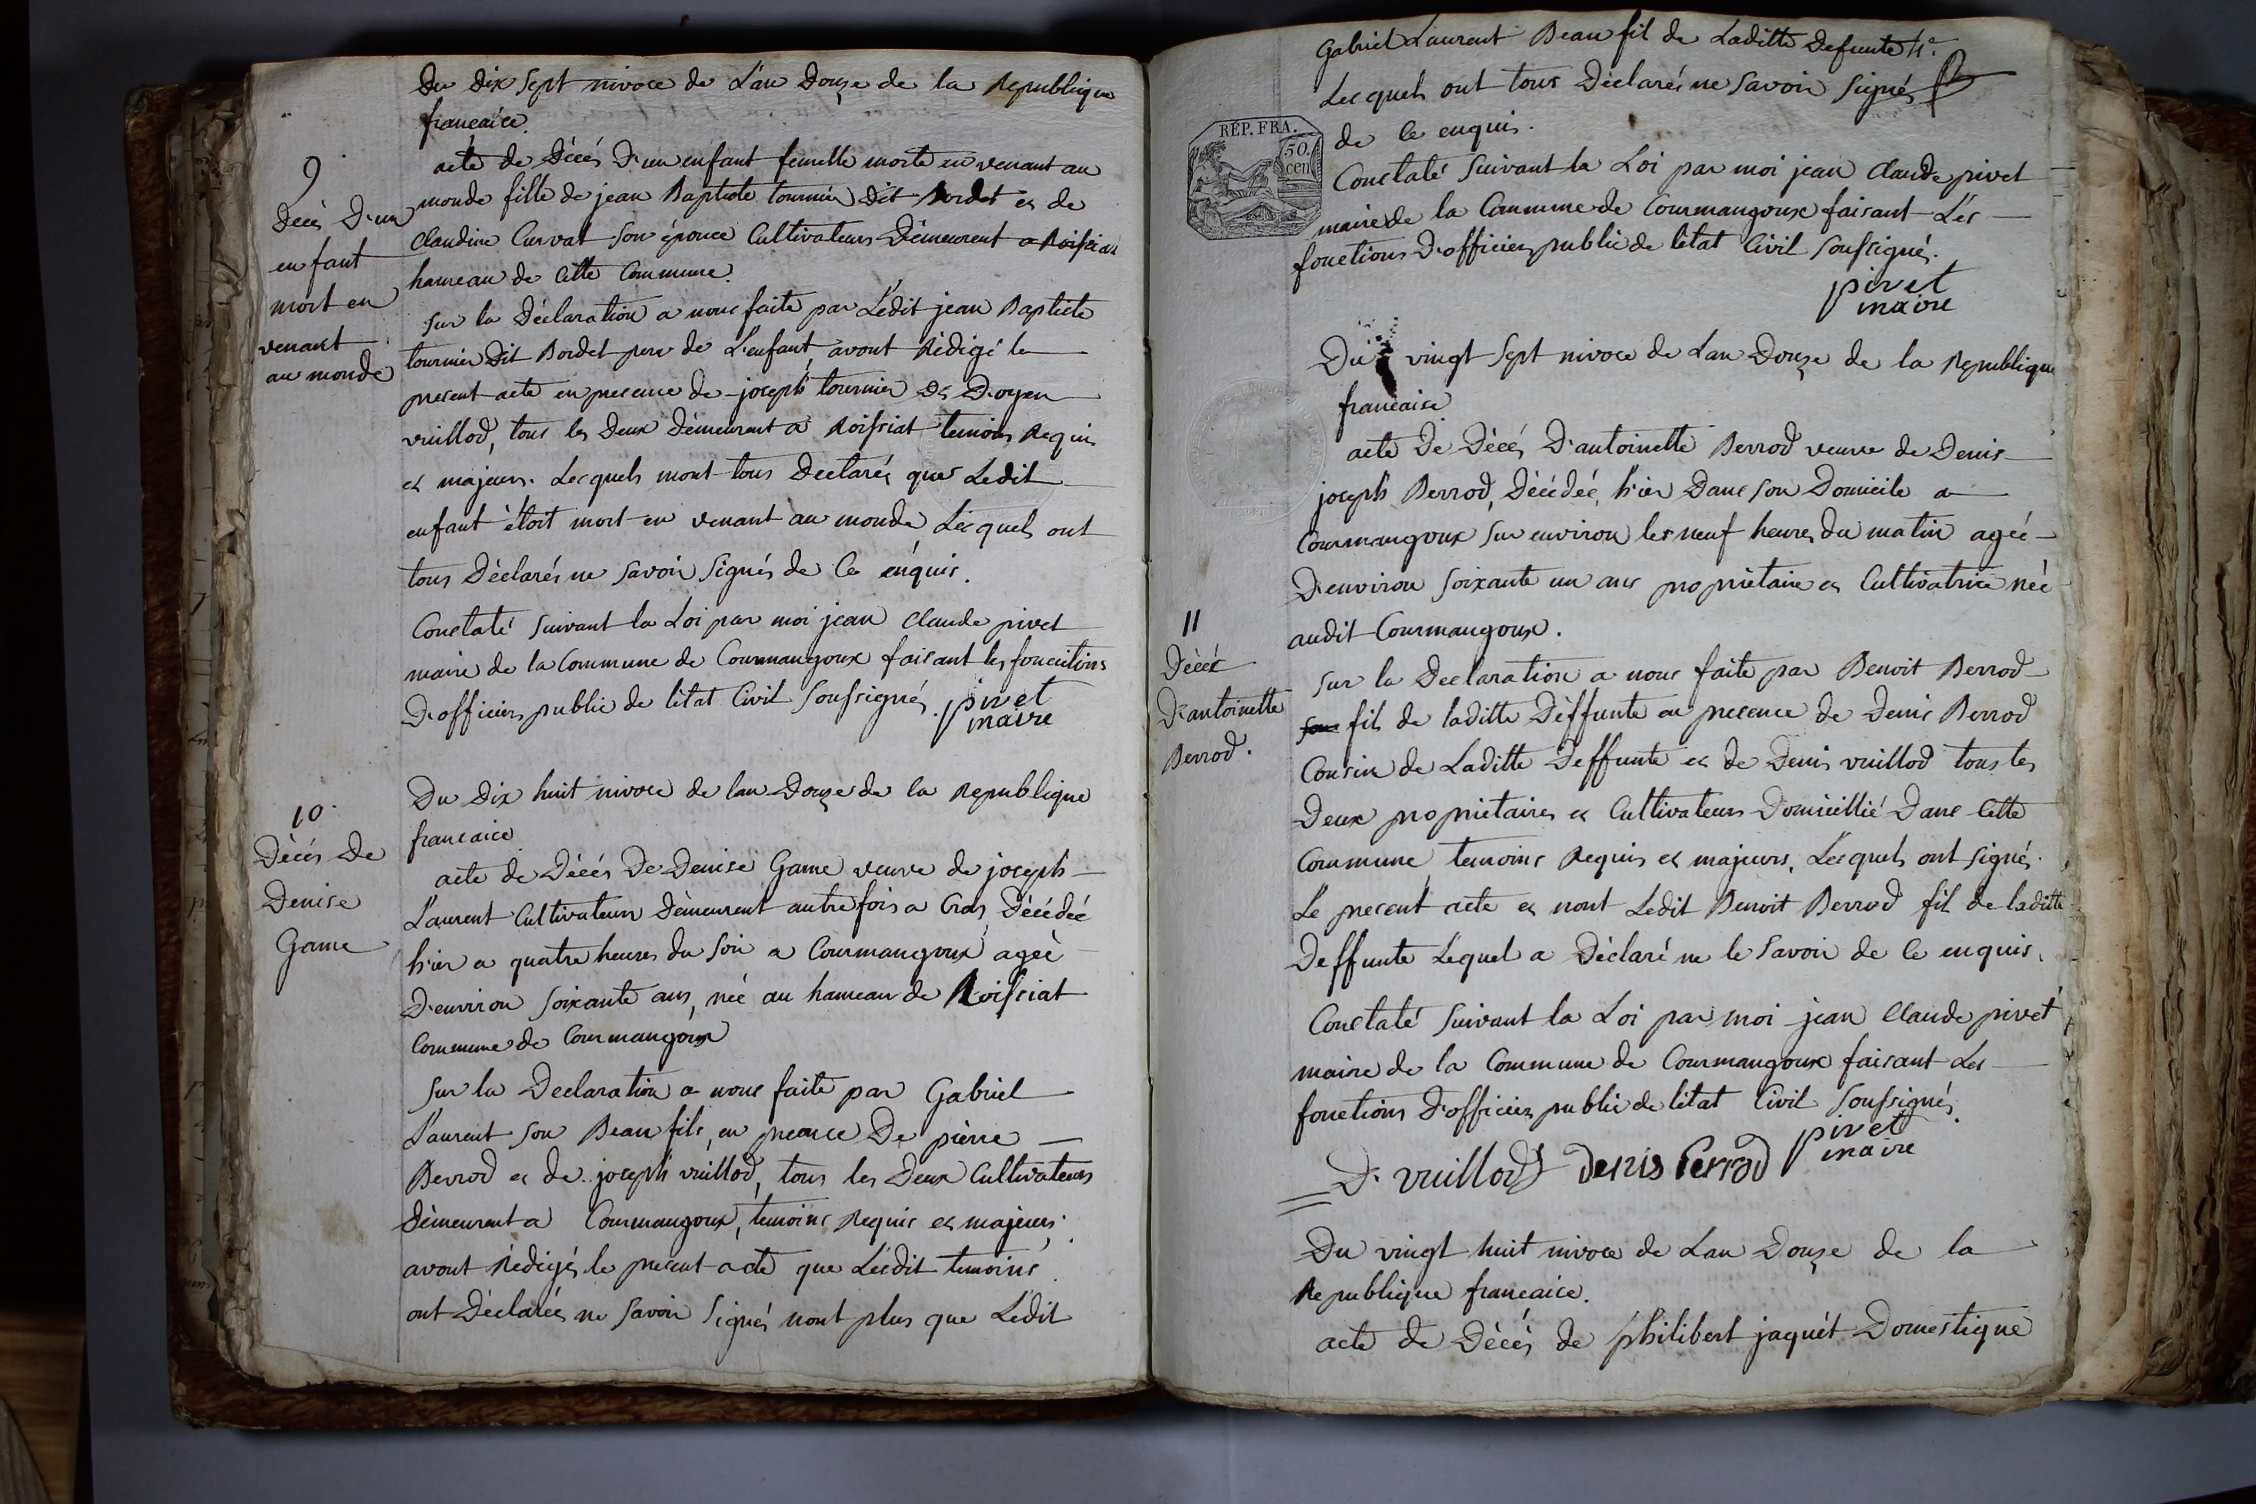 Du Dix Sept nivoce de L'an Douze de la Republique
francaice.
9
Décés D'un
enfant
mort en
venant
au monde
acte de Décés D'un enfant femelle morte en venant au
monde fille de jean Baptiste tournier Dit Bordet et de
Claudine Curvat son épouce Cultivateurs Démeurent a Roissiat
hameau de Cette Commune.
Sur la Déclaration a nous faite par Lédit jean Baptiste
tournier Dit Bordet pere de L'enfant, avont Rédigé le
present acte en presence de joseph tournier et D'oyen
vuillod, tous les Deux Démeurent a Roissiat temoins Requis
et majeurs. Lesquels mont tous Declarés que Ledit
enfant étoit mort en venant au monde, Lesquels ont
tous Déclarés ne savoir Signés de Ce énquis.
Constaté Suivant la Loi par moi jean Claude pivet
maire de la Commune de Courmangoux faisant les fonctions
D'officier public de létat Civil Soussigné. pivet
maire
10
Décés De
Denise
Game
Du Dix huit nivoce de lan Douze de la Republique
francaice
acte de Décés De Denise Game veuve de joseph
Laurent Cultivateur Démeurent autrefois a Cras, Décédeé
h'ier a quatre heures du Soir a Courmangoux ageè
D'environ Soixante ans, née au hameau de Roissiat
Commune de Courmangoux
Sur la Declaration a nous faite par Gabriel
Laurent son Beau fils, en presence De pierre
Berrod et de joseph vuillod, tous les Deux Cultivateurs
Démeurent a Courmangoux, temoins Requis et majeurs;
avont Rédigés le present acte que Lésdit temoins
ont Déclarés ne Savoir Signés nont plus que Lédit
Gabriel Laurent Beau fil de Laditte Defunte
Lesquels ont tous Déclarés ne Savoir Signés
de Ce enquis.
RÉP. FRA.
50.
cen
Constaté Suivant la Loi par moi jean Claude pivet
maire de la Commune de Courmangoux faisant Les
fonctions D'officier public de létat Civil Soussigné.
pivet
maire
Du vingt Sept nivoce de Lan Douze de la Republique
francaise
11
Décés
D'antoinette
Berrod.
acte De Décés D'antoinette Berrod veuve de Denis
joseph Berrod, Décédeé, h'ier Dans son Domicile a
Courmangoux Sur environ les neuf heures du matin ageé
D'environ Soixante un ans propriétaire et Cultivatrice née
audit Courmangoux.
Sur la Declaration a nous faite par Benoit Berrod
son fils de laditte Déffunte en presence de Denis Berrod
Cousin de Laditte Deffunte et de Denis vuillod tous les
Deux propriétaires et Cultivateurs Domicillié Dans Cette
Commune temoins Requis et majeurs. Lesquels ont signés
Le present acte et nont Ledit Benoit Berrod fil de laditte
Deffunte Lequel a Déclaré ne le Savoir de Ce enquis.
Constaté Suivant la Loi par moi jean Claude pivet
maire de la Commune de Courmangoux faisant Les
fonctions D'officier public de létat Civil Soussigné.
D. vuillod Denis Perrod pivet
maire
Du vingt huit nivoce de Lan Douze de la
Republique francaice.
acte de Décés de philibert jaquét Domestique